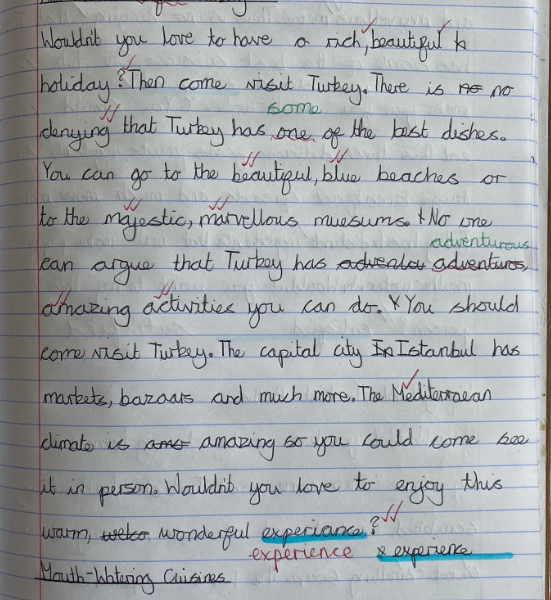 Wouldn't you love to have a rich, beautiful h
holiday? Then come visit Turkey. There is no no
some
denying that Turkey has one of the best dishes.
You can go to the beautiful, blue beaches or
to the majestic, marvellous muesums. No one
adventurous
can argue that Turkey has adventou adventures,
amazing activities you can do. You should
come visit Turkey. The capital city In Istanbul has
markets, bazaars and much more. The Mediterraean
climate is ama amazing so you could come see
it in person. Wouldn't you love to enjoy this
warm, welco wonderful experiance?
experience x experience
Mouth-Watering Cuisines